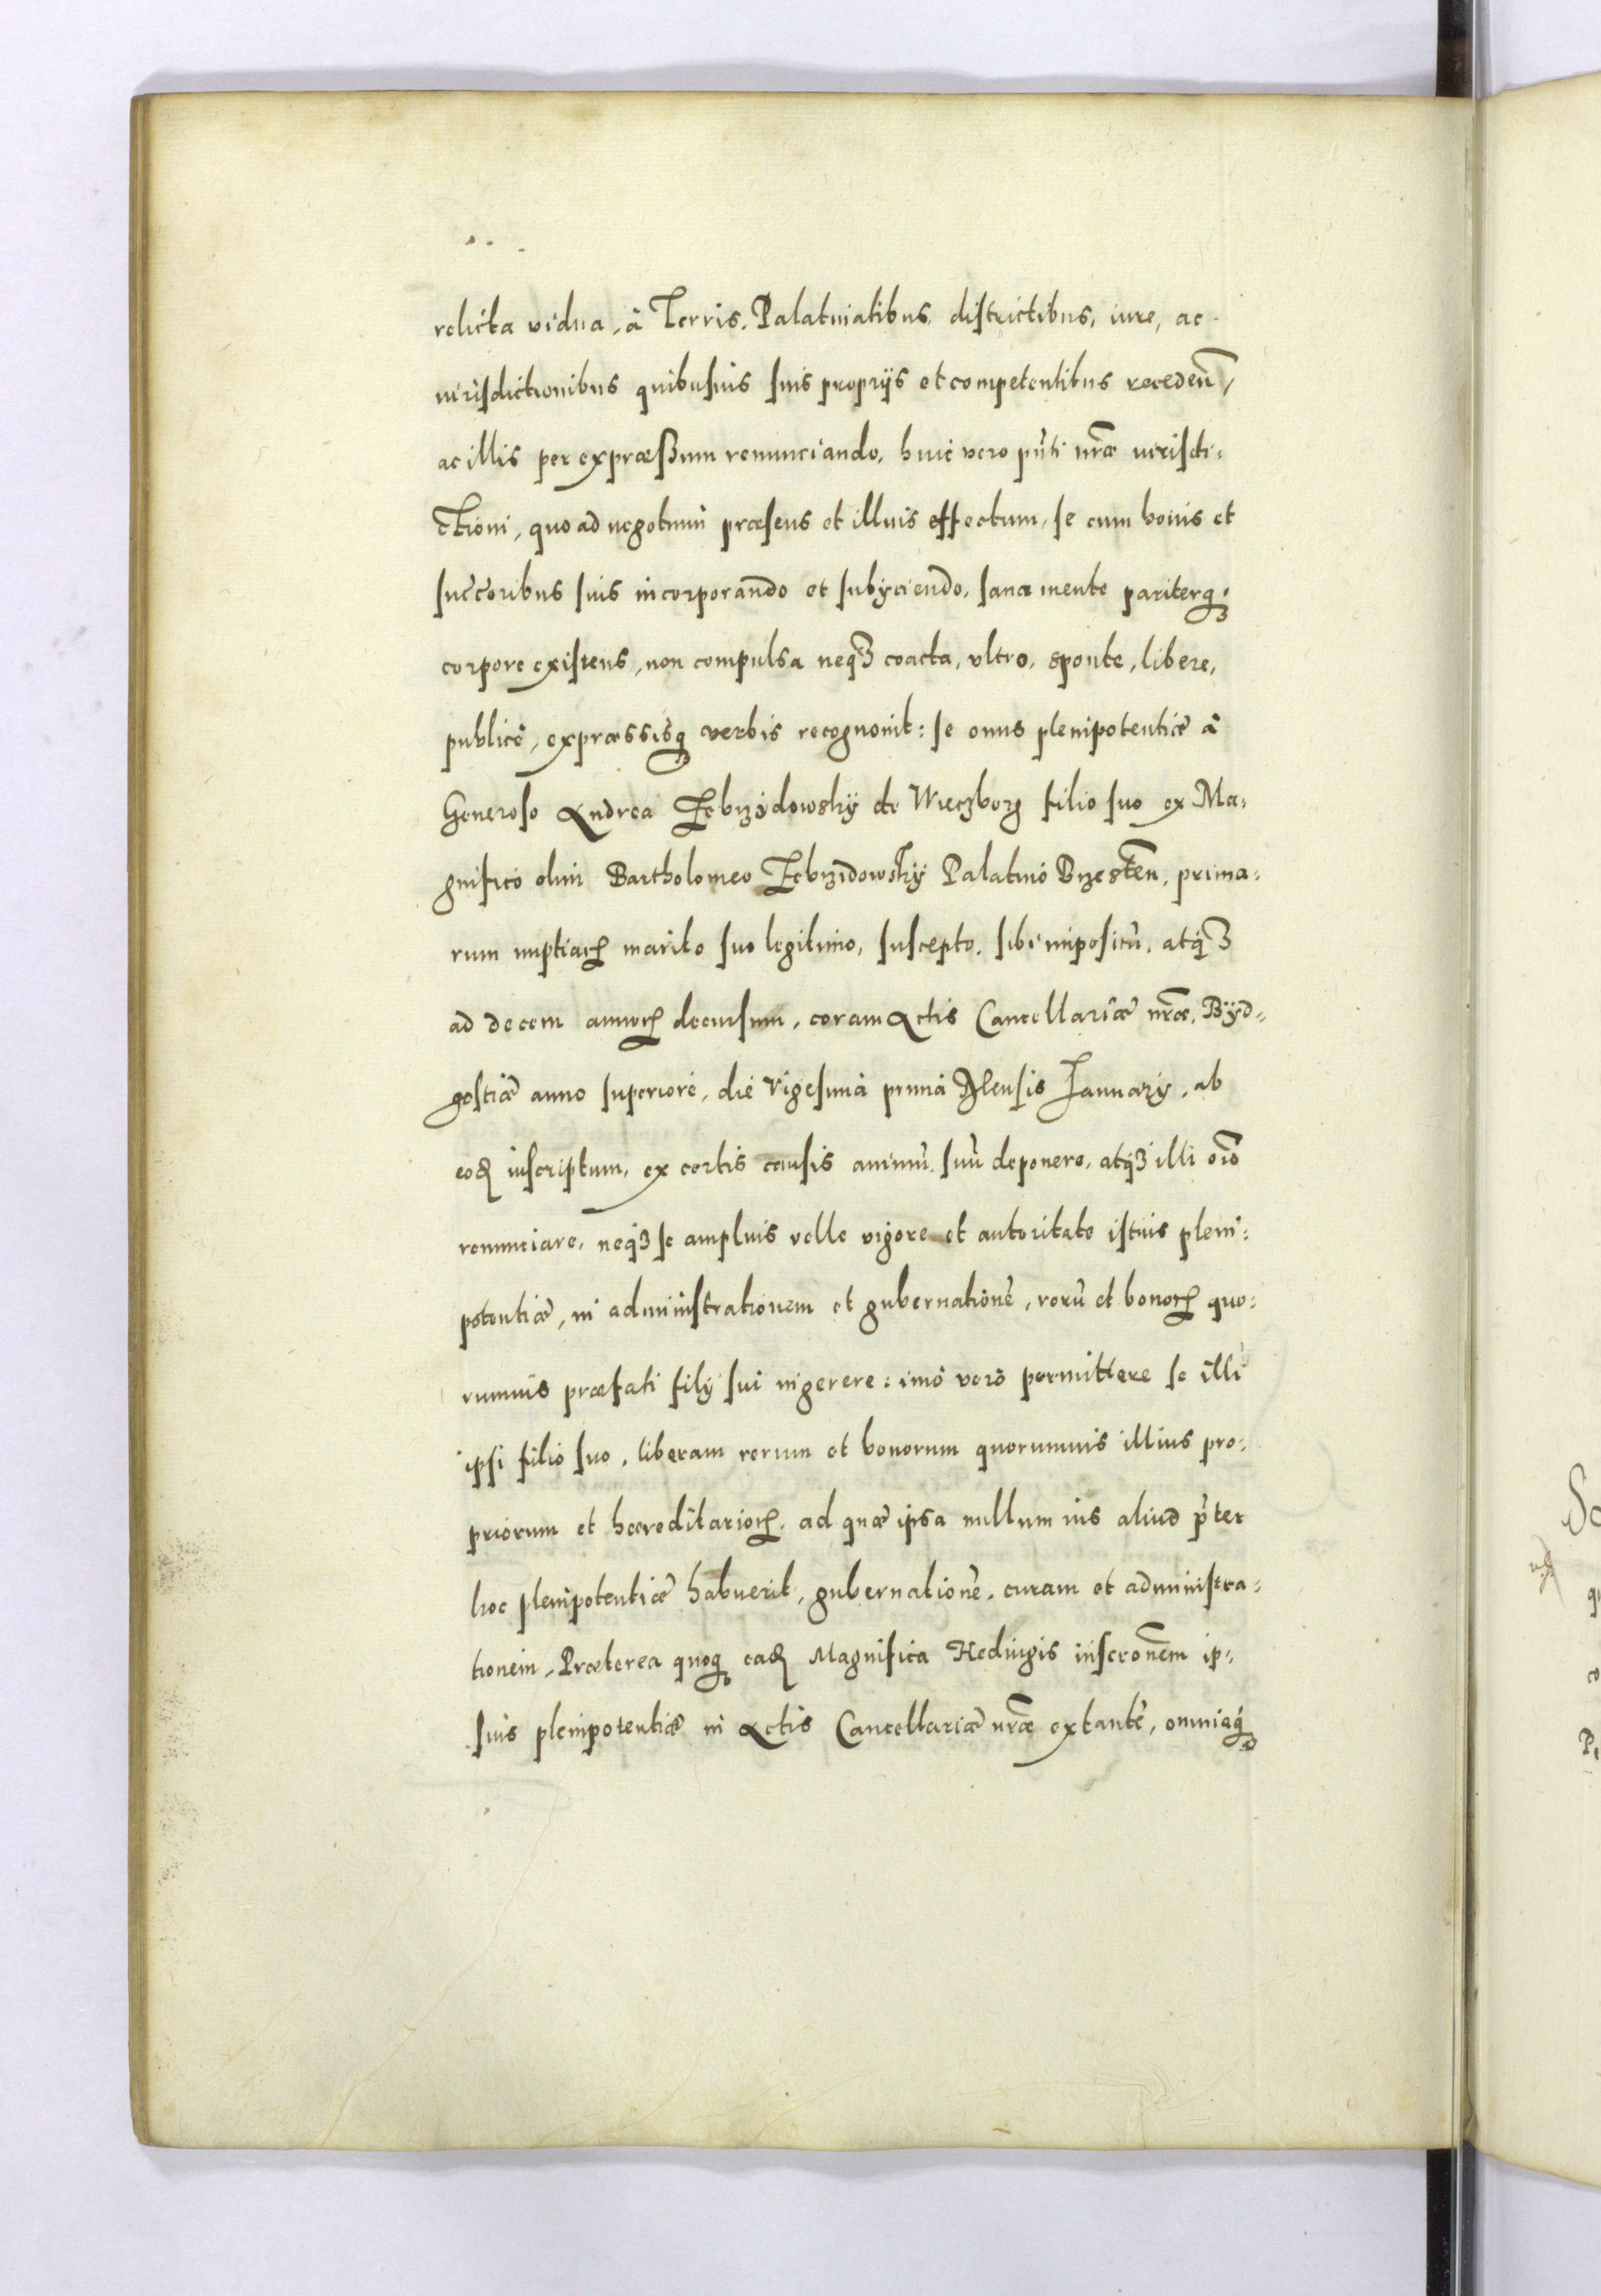 relicta vidua, à Terris, Palatinatibus, districtibus, iure, ac
iurisdictionibus quibusuis suis proprijs et competentibus recedeñ,
ac illis per expræßum renunciando, huic vero pñti nr̃æ iurisdi-
ctioni, quo ad negotium præsens et illius effectum, se cum bonis et
succ̃oribus suis incorporando et subijciendo, sana mente pariterq;
corpore existens, non compulsa neqꝫ coacta, vltro, sponte, libere,
publicè, expræssisq; verbis recognouit: se onus plenipotentiæ à
Generoso Andrea Zebrzÿdowskÿ de Wieczborg filio suo ex Ma-
gnifico olim Bartholomeo Zebrzidowskÿ Palatino Brzesteñ, prima-
rum nuptiaꝝ marito suo legitimo, suscepto, sibi impositũ, atqꝫ
ad decem annoꝝ decursum, coram Actis Cancellariæ nr̃æ, Bÿd-
gostiæ anno superiore, die vigesima prima Mensis Ianuarij, ab
eoꝝ inscriptum, ex certis causis animũ suũ deponere, atqꝫ illi oĩo
renunciare, neqꝫ se amplius velle vigore et autoritate istius pleni-
potentiæ, in administrationem et gubernationẽ, rerũ et bonoꝝ quo-
rumuis præfati filij sui ingerere: imò verò permittere se illi
ipsi filio suo, liberam rerum et bonorum quorumuis illius pro-
priorum et hæreditarioꝝ, ad quæ ipsa nullum ius aliud p̃ter
hoc plenipotentiæ habuerit, gubernationẽ, curam et administra-
tionem, Præterea quoq; eaꝝ Magnifica Heduigis inscr̃onem ip-
sius plenipotentiæ in Actis Cancellariæ nr̃æ extantẽ, omniaq;